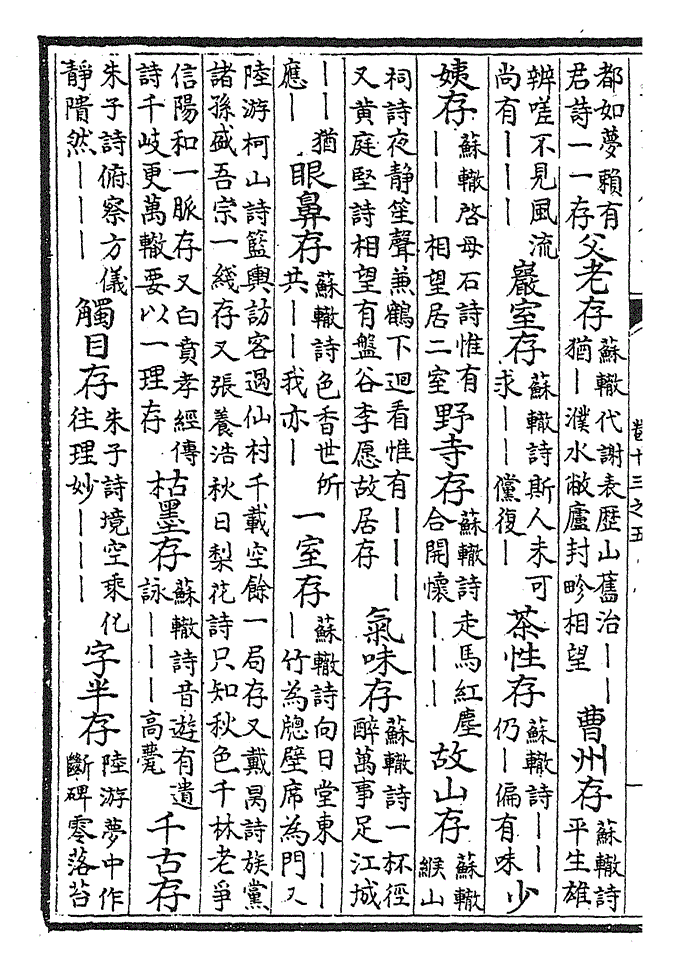 卷十三之五
都如夢賴有君詩一一存父老存蘇轍代謝表歷山舊治｜｜猶｜濮水敝廬封畛相望曹州存蘇轍詩平生雄
辨嗟不見風流尚有｜｜｜巖室存蘇轍詩斯人未可求｜｜儻復｜茶性存蘇轍詩｜｜仍｜偏有味少
姨存蘇轍啓母石詩惟有｜｜｜相望居二室野寺存蘇轍詩走馬紅塵合開懷｜｜｜故山存蘇轍緱山
祠詩夜静笙聲兼鶴下迴看惟有｜｜｜又黄庭堅詩相望有盤谷李愿故居存氣味存蘇轍詩一杯徑醉萬事足江城
｜｜猶應｜眼鼻存蘇轍詩色香世所共｜｜我亦｜一室存蘇轍詩向日堂東｜｜｜竹為牎壁席為門又
陸游柯山詩籃輿訪客過仙村千載空餘一局存又戴昺詩族黨諸孫盛吾宗一綫存又張養浩秋日梨花詩只知秋色千林老爭
信陽和一脈存又白賁孝經傳詩千岐更萬轍要以一理存枯墨存蘇轍詩昔遊有遺詠｜｜｜高甍千古存
朱子詩俯察方儀静隤然｜｜｜觸目存朱子詩境空乘化往理妙｜｜｜字半存陸游夢中作斷碑零落苔